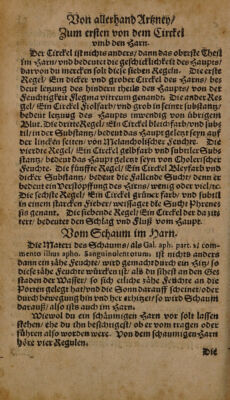 Von allerhand Artzney/
Zum ersten von dem Circkel
vmb den Harn.
Der Circkel ist nichts anders/ dann das oberste Theil
im Harn/ vnd bedeutet die geschicklichkeit des Haupts/
darvon du mercken solt diese sieben Regeln. Die erste
Regel/ Ein dicker vnd grober Circkel des Harns/ be-
deut letzung des hindern theils des Haupts/ von der
Feuchtigkeit Flegma vterum genandt. Die ander Re-
gel/ Ein Circkel Rotfarb/ vnd grob in seiner substantz/
bedeut letzung des Haupts inwendig von übrigem
Blut. Die dritte Regel/ Ein Circkel bleichfarb vnd sub-
til/ in der Substantz/ bedeut das Haupt geletzt seyn auff
der lincken seiten/ von Melancholischer Feuchte. Die
vierdte Regel/ Ein Circkel gelbfarb vnd subtiler Sub-
stantz/ bedeut das Haupt geletzt seyn von Cholerischer
Feuchte. Die fünffte Regel/ Ein Circkel Bleyfarb vnd
dicker Substantz/ bedeut die Fallende Sucht/ denn er
bedeut ein Verstopffung des Hirns/ wenig oder viel/ etc.
Die sechste Regel/ Ein Circkel grüner farb/ vnd subtil
in einem starcken Fieber/ bedeutet ein böse Sucht Phrene-
sis genant. Die siebende Regel/ Ein Circkel der da zit-
tert/ bedeutet den Schlag vnd Fluß vom Haupt.
Vom Schaum im Harn.
Die Materi des Schaums/ als Gal. aph. part. 21 com-
mento illius apho. Sanguinolentorum. ist nichts anders
dann ein zähe Feuchte/ wird gemacht durch ein Hitz/ so
diese zähe Feuchte würcken ist/ als du sihest an den Ge-
staden der Wasser/ so sich etliche zähe Feuchte an die
Porten gelegt hat/ vnd die Sonn darauff scheinet/ oder
durch bewegung hin vnd her erhitzet/ so wird Schaum
darauß/ also ists auch im Harn.
Wiewol du ein schäumigen Harn vor solt lassen
stehen/ ehe du ihn besichtigest/ ob er vom tragen oder
führen also worden were. Von dem schaumigen Harn
höre vier Regulen.
Die